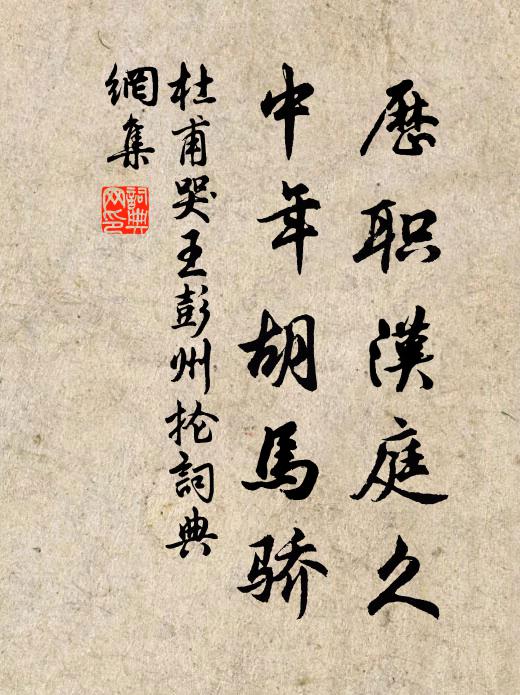 歷职漢庭久
中年胡馬骄
杜甫哭王彭州抡詞典
網集
詞典网印